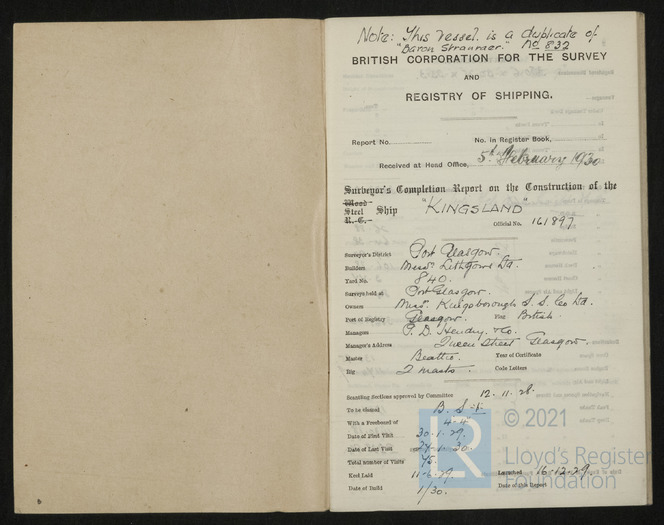 Note: This vessel is a duplicate of
"Baron Stranraer." No 832
BRITISH CORPORATION FOR THE SURVEY
AND
REGISTRY OF SHIPPING.
Report No. No. in Register Book,
Received at Head Office, 5th February 1930
Surveyor's Completion Report on the Construction of the
Wood
Steel Ship "KINGSLAND"
R.C.
Official No. 161897
Surveyor's District Port Glasgow.
Builders Messrs Lithgows Ltd.
Yard No. 840.
Surveys held at Port Glasgow.
Owners Messrs. Kingsborough S.S. Co Ltd.
Port of Registry Glasgow. Flag British.
Managers P. D. Hendry & Co.
Manager's Address Queen Street Glasgow.
Master Beattie. Year of Certificate
Rig 2 masts. Code Letters
Scantling Sections approved by Committee 12.11.28.
To be classed B.S.*
With a Freeboard of
Date of First Visit 30.1.29.
Date of Last Visit 30.
Total number of Visits 75.
Keel Laid 11.6.29. Launched 16.12.29
Date of Build 1/30. Date of this Report
LR © 2021
Lloyd's Register
Foundation